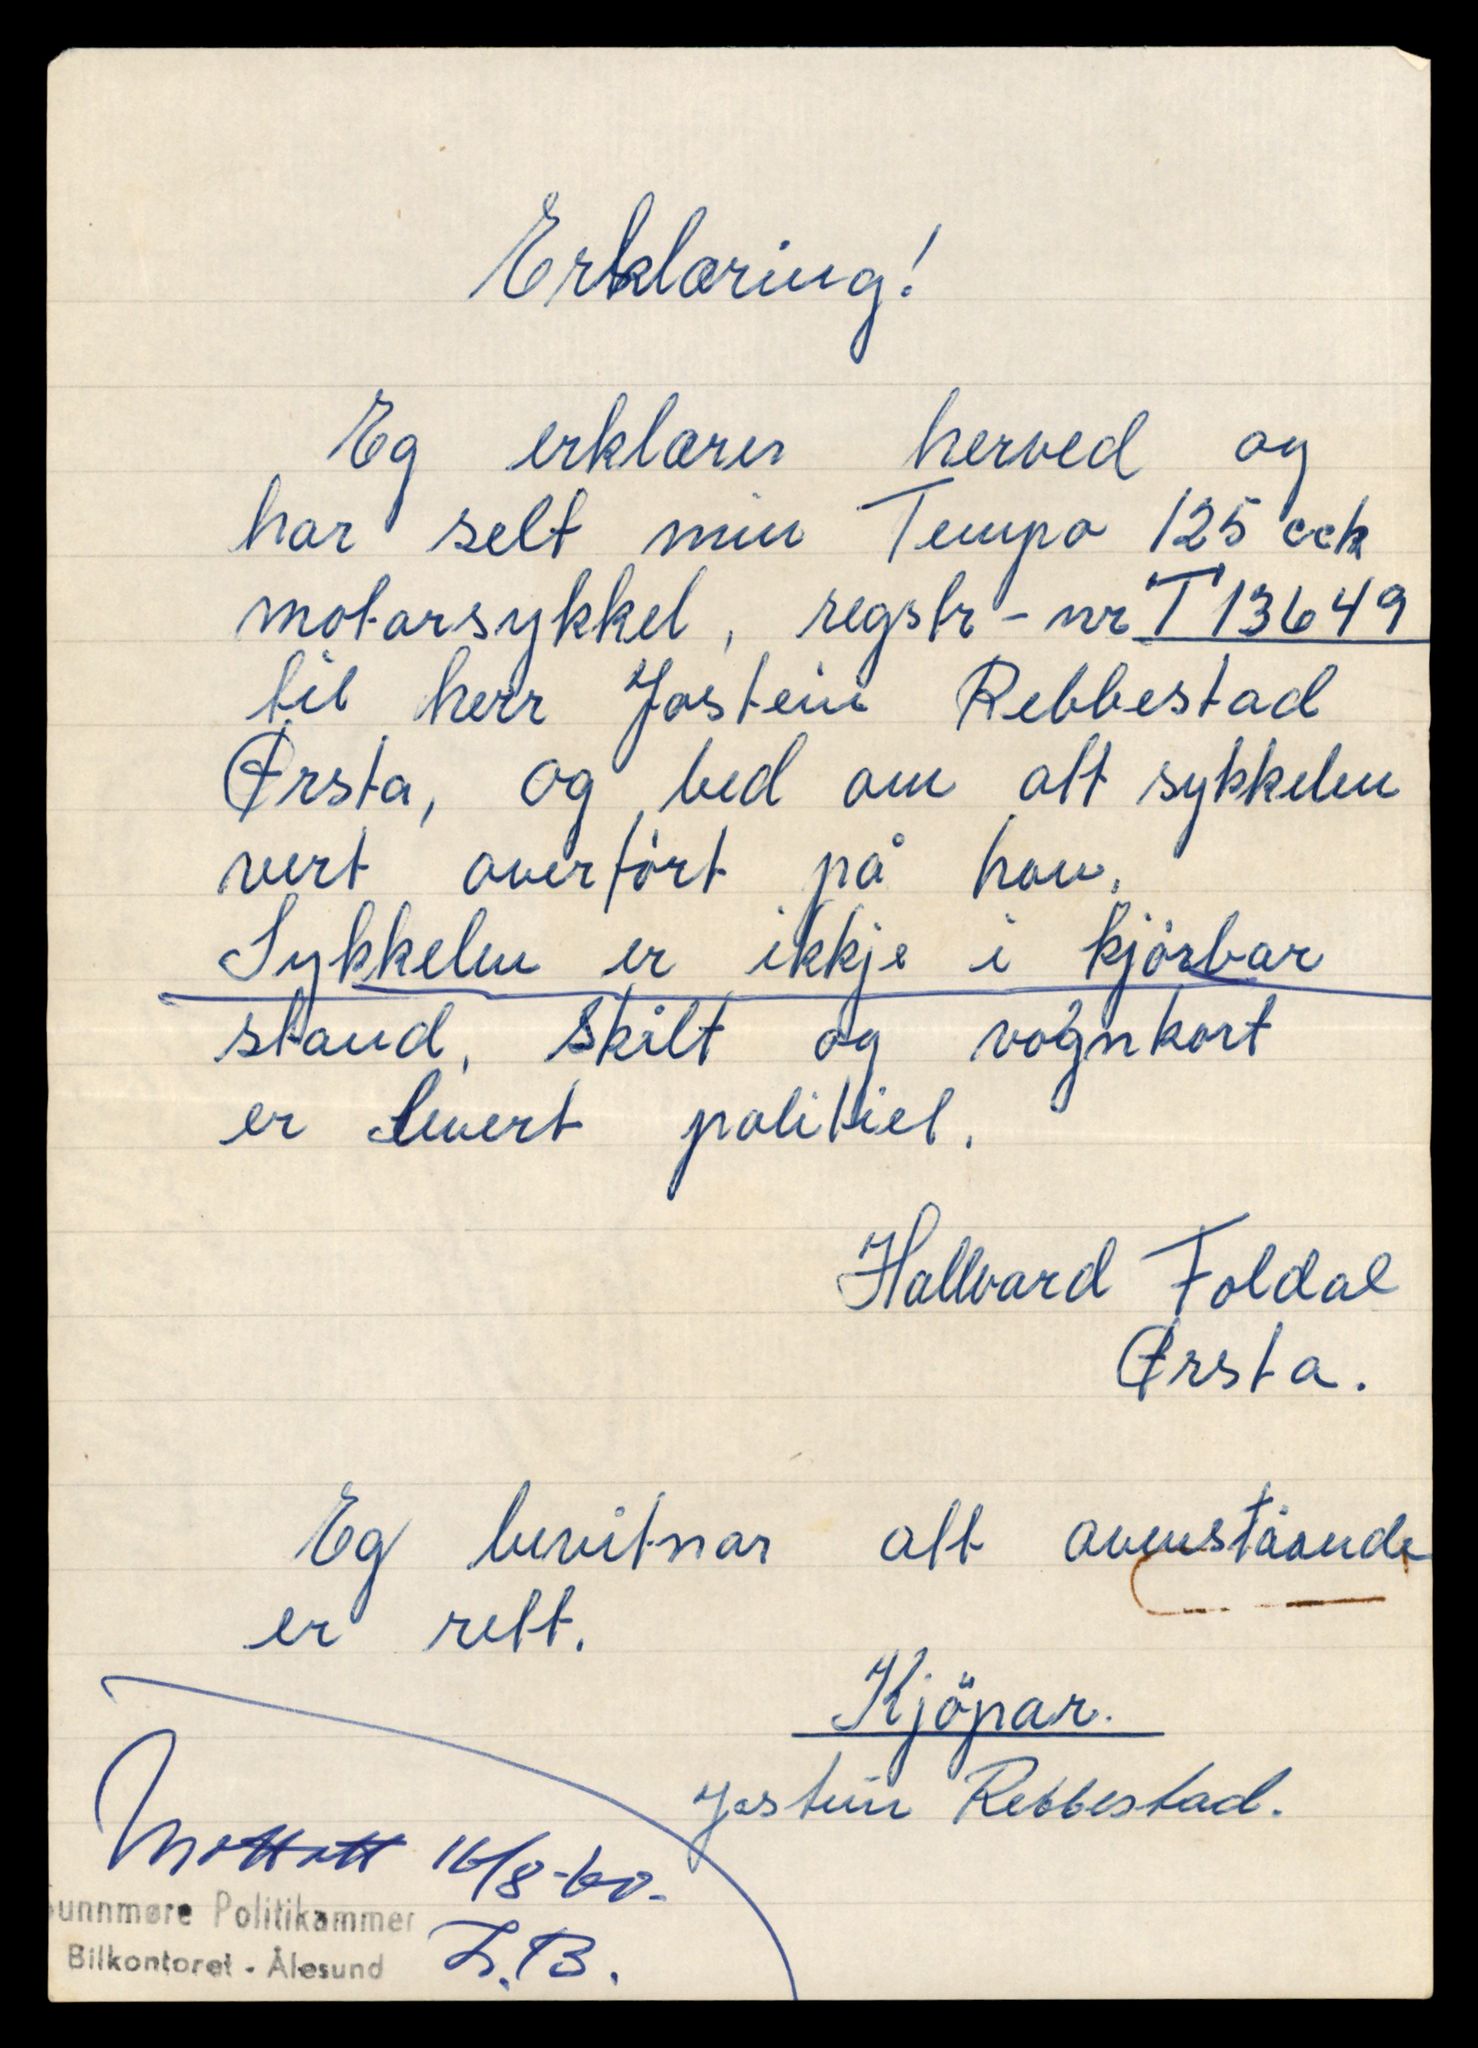 Erklæring!
Eg erklærer herved og
har selt min Tempo 125 cck
motorsykkel, regstr-nr T 13649
til herr Jostein Rebbestad
Ørsta, og bed om att sykkelen
vert overført på han.
Sykkelen er ikkje i kjørbar
stand. Skilt og vognkort
er levert politiet.
Hallvard Foldal
Ørsta.
Eg bevitnar att ovenståande
er rett.
Kjöpar.
Jostein Rebbestad.
Mottatt 16/8-60.
unnmøre Politikammer
Bilkontoret - Ålesund